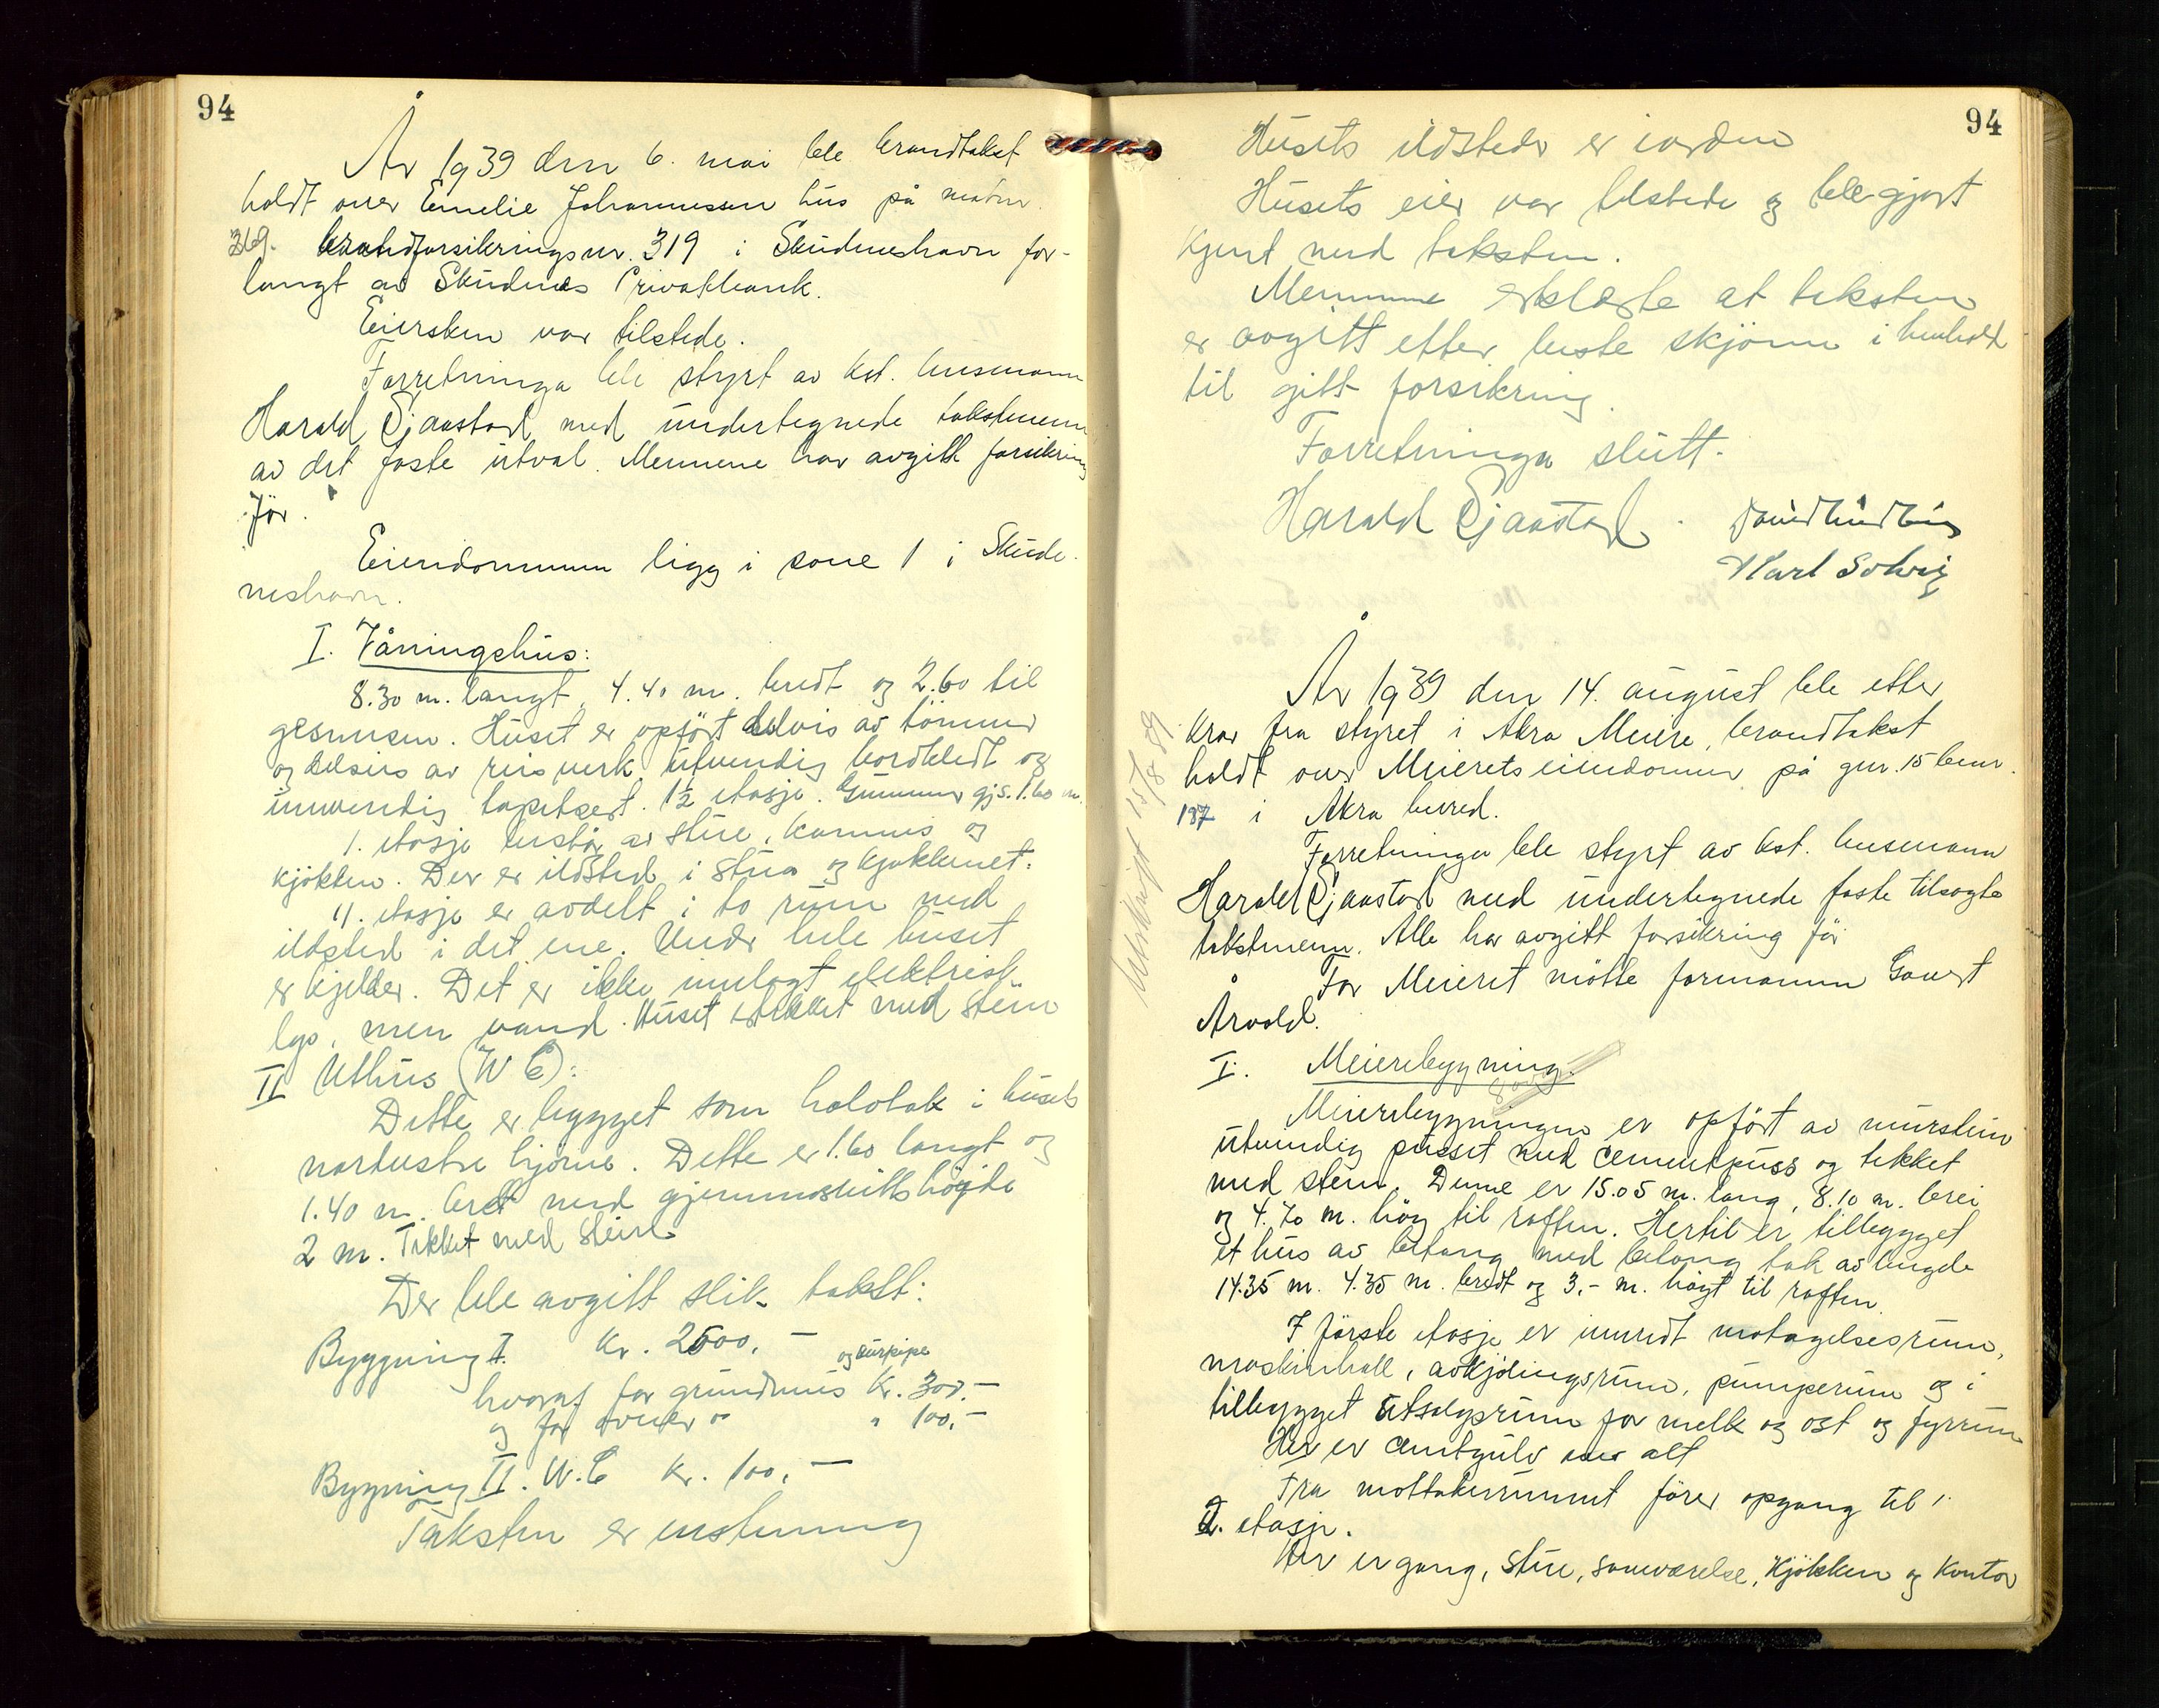 94
År 1939 den 6. mai ble brandtakst
holdt over Emelie Johannessen hus på matrn.
369. brandforsikringsnr. 319 i Skudeneshavn for-
langt av Skudenes Privatbank.
Eiersken var tilstede.
Forretninga ble styrt av kst. lensmann
Harald Sjaastad med undertegnede takstmenn
av det faste utval. Mennene har avgitt forsikring
för.
Eiendommen ligg i sone 1 i Skude-
neshavn.
I. Våningshus:
8.30 m. langt, 4.40 m. bredt og 2.60 til
gesmisen. Huset er opfört delvis av tömmer
og delvis av reisverk utvendig bordkledt og
innvendig tapetsert. 1½ etasje. gjs. 1.60 m.
1. etasje består av stue, kammis og
kjökken. Der er ildsted i stua og kjøkkenet.
II. etasje er avdelt i to rum med
ildsted i det ene. Under hele huset
er kjelder. Det er ikke innlagt elektrisk
lys, men vand. Huset er tekket med stein
II Uthus (W C):
Dette er bygget som halvtak i husets
nordvestre hjørne. Dette er 1.60 langt og
1.40 m. bredt med gjennomsnittshögde
2 m. Tekket med stein
Der ble avgitt slik takst:
Byggning I. Kr. 2500,-
og surpipe
hvorav for grundmur Kr. 300,-
og for ovner " " 100,-
Bygning II. W.C Kr. 100,-
Taksten er enstemmig
94
Husets ildsteder er iorden
Husets eier var tilstede og ble gjort
kjent med taksten.
Mennene erklærte at taksten
er avgitt etter beste skjönn i henhold
til gitt forsikring.
Forretninga slutt.
Harald Sjaastad.
Karl Solvig
År 1939 den 14. august ble etter
krav fra styret i Akra Meieri, brandtakst
holdt over Meierets eiendommer på gnr. 15 bnr.
187 i Akra herred.
Forretninga ble styrt av kst. lensmann
Harald Sjaastad med undertegnede faste tilsagte
takstmenn. Alle har avgitt forsikring för
For Meieriet mötte formannen Gouert
Årvold.
Utskrift 15/8 39
I. Meieribygning:
Meieribygningen er opfört av murstein
utvendig pusset med cementpuss og tekket
med stein. Denne er 15.05 m. lang, 8.10 m. brei
og 4.70 m. höy til raften. Hertil er tilbygget
et hus av betong med betong tak av lengde
14.35 m. 4.35 m. bredt og 3,- m. högt til raften.
I förste etasje er innredt motagelsesrum,
maskinhall, avkjölingsrum, pumperum og i
tilbygget utsalgsrum for melk og ost og fyrrum
Her er cemtgulv over alt
Fra mottakerrummet förer opgang til
2. etasje.
Her er gang, stue, soveværelse, kjökken og kontor